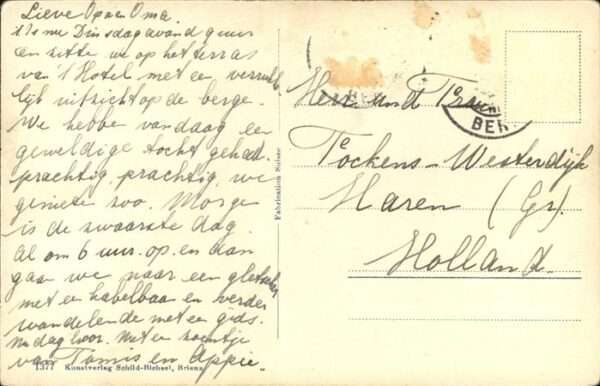 Lieve Opa en Oma.
't Is nu Dinsdagavond 9 uur
en zitte we op het terras
van 't Hotel met een verruk
lijk uitzicht op de berge.
We hebbe vandaag een
geweldige tocht gehad,
prachtig, prachtig, we
geniete zoo. Morge
is de zwaarste dag.
Al om 6 uur op en dan
gaan we naar een gletscher
met en kabelbaan en verder
wandelende met en gids.
Nu dag hoor. Met en zoentje
van Tomis en Appie.
1377 Kunstverlag Schild-Bichsel, Brienz
Fabrication Suisse
BER
Herr und Frau
Tockens-Westerdijk
Haren (Gr).
Holland.